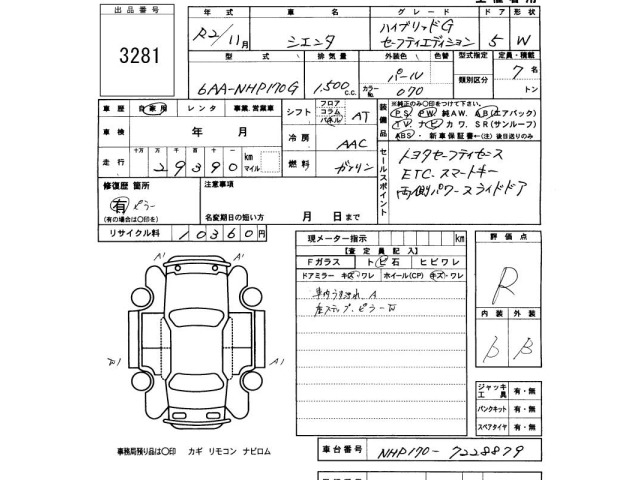 出品番号
3281
年式 車名 グレード ドア 形状
R2/11月 シエンタ ハイブリッドG
セーフティエディション 5 W
型式 排気量 外装色 色替 型式指定 定員・積載
6AA-NHP170G 1,500 C.C. パール 類別区分 7名
カラーNo. 070 トン
車歴 自家用 レンタ 事業、営業車
シフト フロア コラム パネル AT
車検 年 月
冷房 AAC
走行 十万 万 千 百 十 km マイル
29390
燃料 ガソリン
装備品
※純正のみ〇印をつけて下さい。
PS PW 純AW. AB(エアバック)
TV ナビ カワ SR(サンルーフ)
ABS・新車保証書←(注)後日送りのみ
セールスポイント
トヨタセーフティセンス
ETC. スマートキー
両側パワースライドドア
修復歴 箇所 注意事項
有 ピラー
(有の場合は〇印を) 名変期日の短い方 月 日まで
リサイクル料 10360円
現メーター指示 km
【査定員記入】
Fガラス トビ石 ヒビワレ
ドアミラー キズ・ワレ ホイール(CP) キズ・ワレ
車内うすよごれ A
左ステップ、ピラーW
評価点
R
内装 外装
B B
A' A'
A1
ジャッキ工具 有・無
パンクキット 有・無
スペアタイヤ 有・無
事務局預り品は〇印 カギ リモコン ナビロム
車台番号 NHP170-7228879